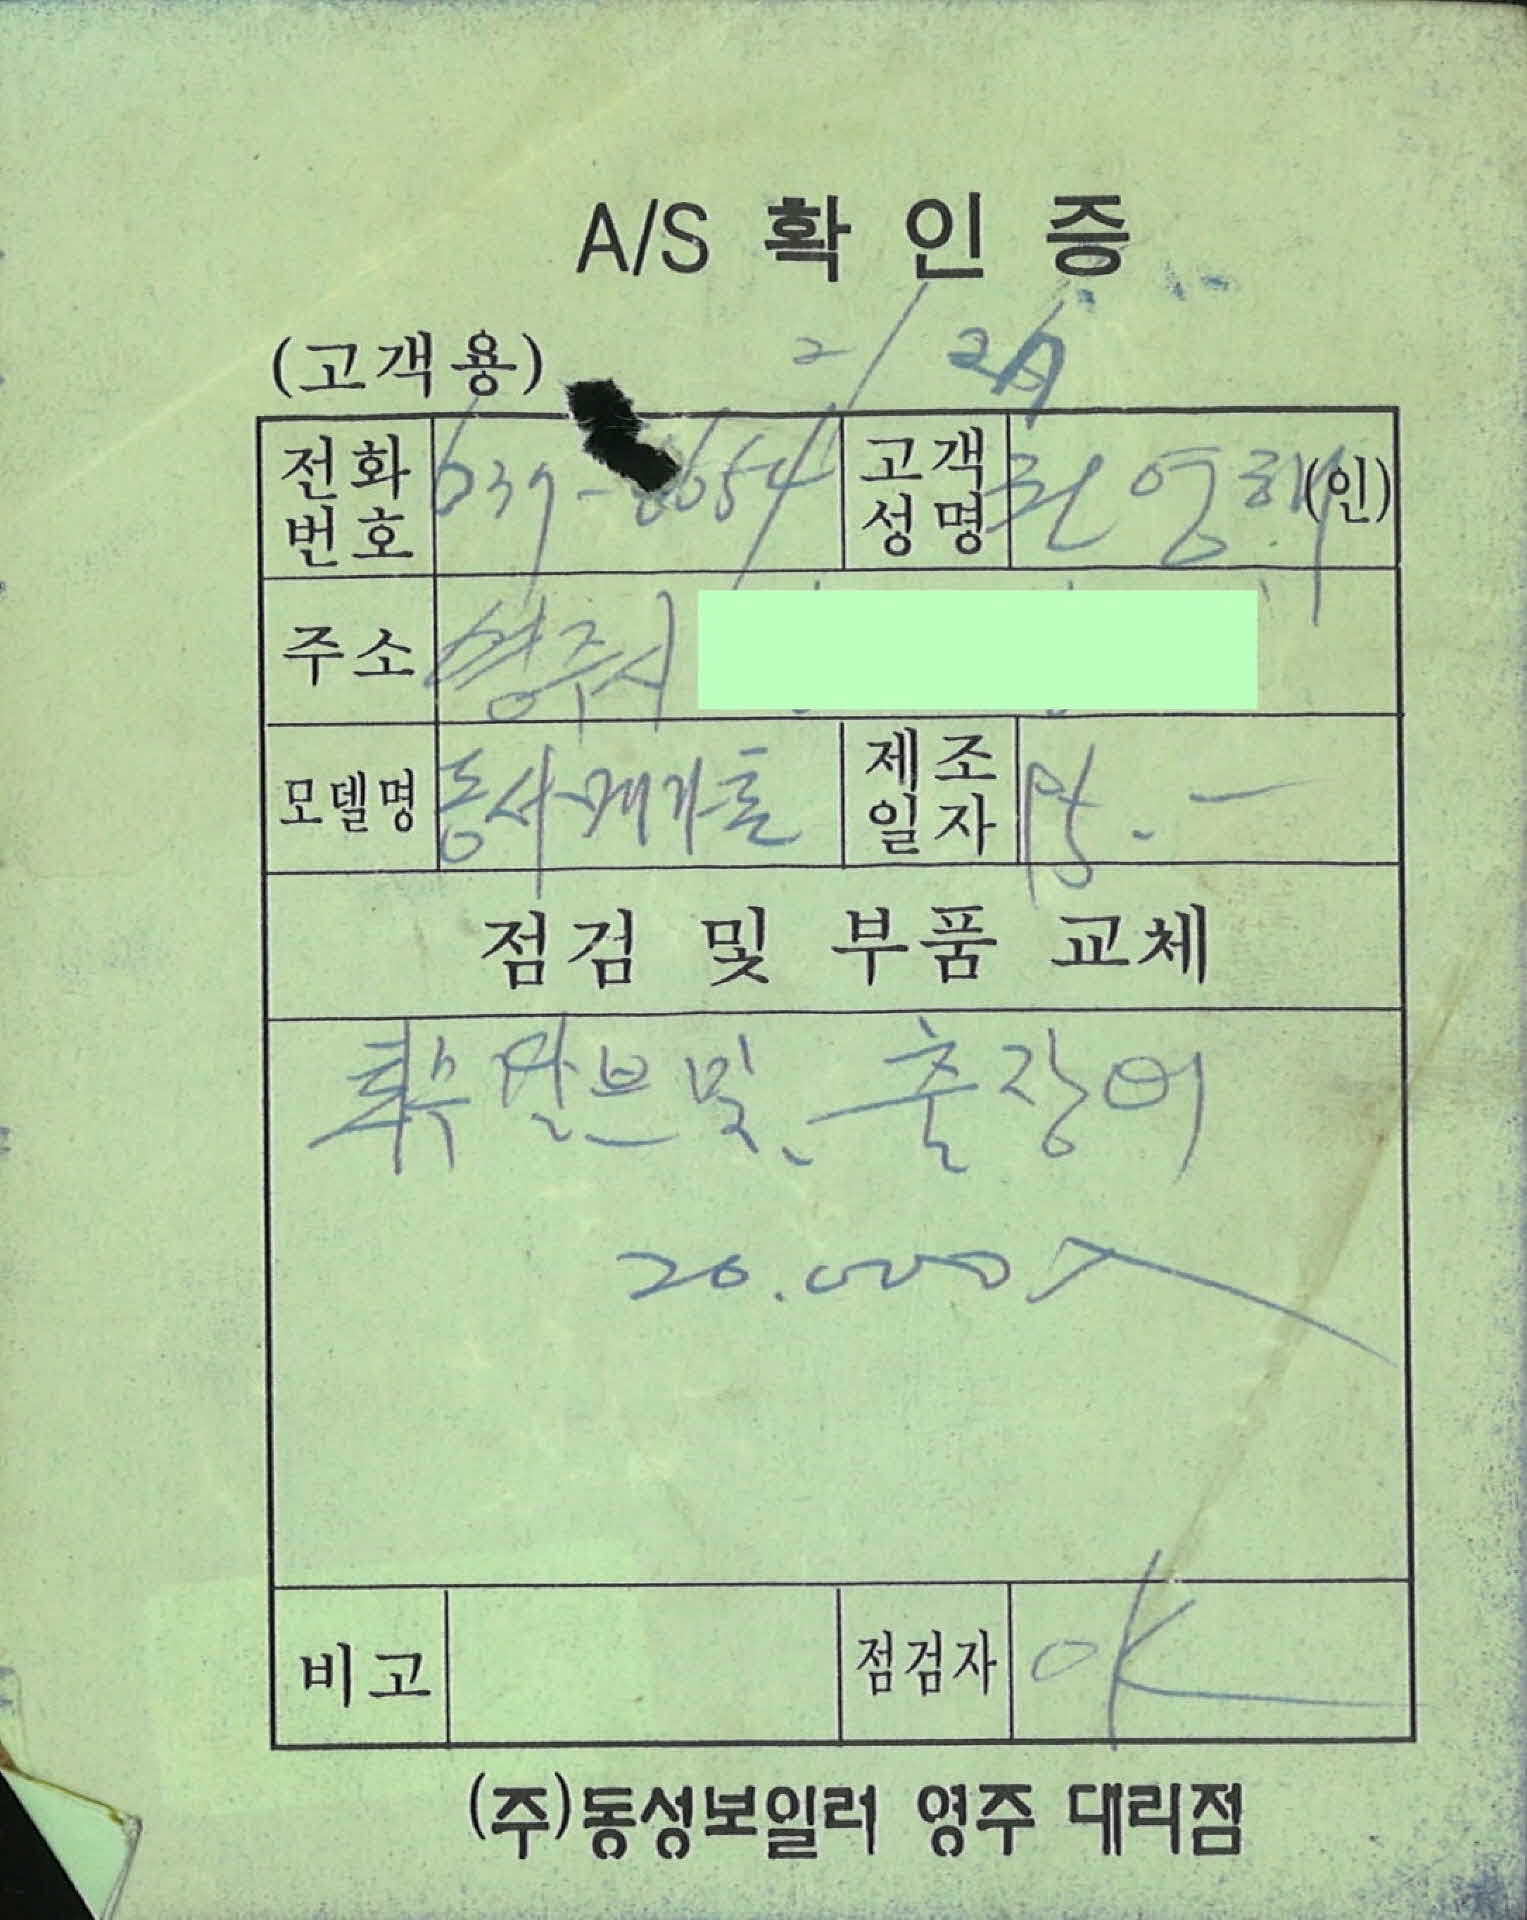 A/S 확 인 증
(고객용)
2/27
전화번호 637-8654 고객성명 영 (인)
주소 영주시
모델명 제조일자 95. -
점검 및 부품 교체
밸브 및 출장
20.000
비고 점검자 OK
(주)동성보일러 영주 대리점